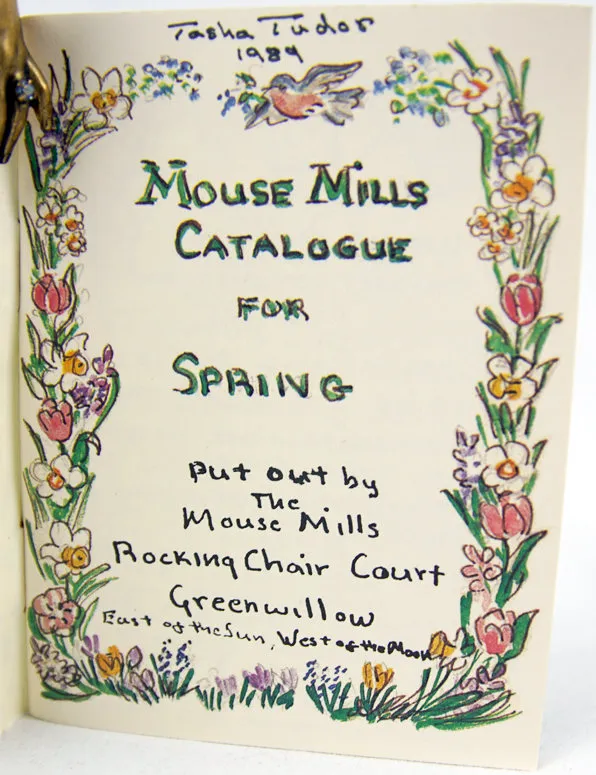 Tasha Tudor
1989
MOUSE MILLS
CATALOGUE
FOR
SPRING
Put out by
The
Mouse Mills
Rocking Chair Court
Greenwillow
East of the Sun, West of the Moon